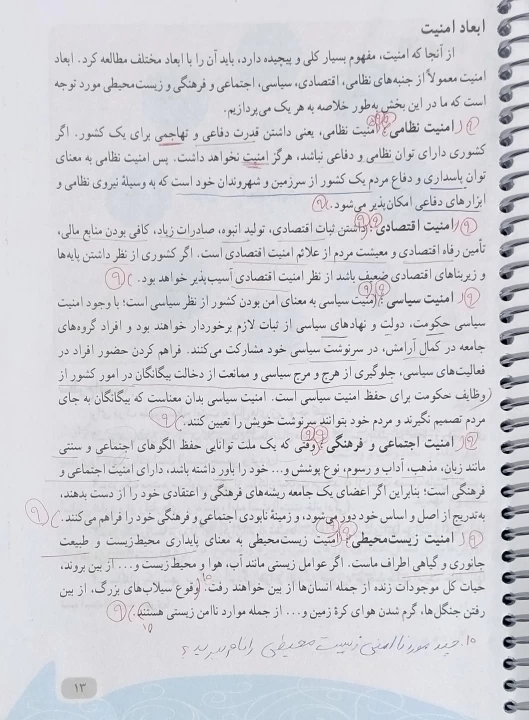 ابعاد امنیت
از آنجا که امنیت، مفهوم بسیار کلی و پیچیده دارد، باید آن را با ابعاد مختلف مطالعه کرد. ابعاد
امنیت معمولاً از جنبه‌های نظامی، اقتصادی، سیاسی، اجتماعی و فرهنگی و زیست‌محیطی مورد توجه
است که ما در این بخش به‌طور خلاصه به هر یک می‌پردازیم.
امنیت نظامی: امنیت نظامی، یعنی داشتن قدرت دفاعی و تهاجمی برای یک کشور. اگر
کشوری دارای توان نظامی و دفاعی نباشد، هرگز امنیت نخواهد داشت. پس امنیت نظامی به معنای
توان پاسداری و دفاع مردم یک کشور از سرزمین و شهروندان خود است که به وسیلهٔ نیروی نظامی و
ابزارهای دفاعی امکان‌پذیر می‌شود.
امنیت اقتصادی: داشتن ثبات اقتصادی، تولید انبوه، صادرات زیاد، کافی بودن منابع مالی،
تأمین رفاه اقتصادی و معیشت مردم از علائم امنیت اقتصادی است. اگر کشوری از نظر داشتن پایه‌ها
و زیربناهای اقتصادی ضعیف باشد از نظر امنیت اقتصادی آسیب‌پذیر خواهد بود.
امنیت سیاسی: امنیت سیاسی به معنای امن بودن کشور از نظر سیاسی است؛ با وجود امنیت
سیاسی حکومت، دولت و نهادهای سیاسی از ثبات لازم برخوردار خواهند بود و افراد گروه‌های
جامعه در کمال آرامش، در سرنوشت سیاسی خود مشارکت می‌کنند. فراهم کردن حضور افراد در
فعالیت‌های سیاسی، جلوگیری از هرج و مرج سیاسی و ممانعت از دخالت بیگانگان در امور کشور از
وظایف حکومت برای حفظ امنیت سیاسی است. امنیت سیاسی بدان معناست که بیگانگان به جای
مردم تصمیم نگیرند و مردم خود بتوانند سرنوشت خویش را تعیین کنند.
امنیت اجتماعی و فرهنگی: وقتی که یک ملت توانایی حفظ الگوهای اجتماعی و سنتی
مانند زبان، مذهب، آداب و رسوم، نوع پوشش و... خود را باور داشته باشد، دارای امنیت اجتماعی و
فرهنگی است؛ بنابراین اگر اعضای یک جامعه ریشه‌های فرهنگی و اعتقادی خود را از دست بدهند،
به‌تدریج از اصل و اساس خود دور می‌شود، و زمینهٔ نابودی اجتماعی و فرهنگی خود را فراهم می‌کنند.
امنیت زیست‌محیطی: امنیت زیست‌محیطی به معنای پایداری محیط‌زیست و طبیعت
جانوری و گیاهی اطراف ماست. اگر عوامل زیستی مانند آب، هوا و محیط‌زیست و... از بین بروند،
حیات کل موجودات زنده از جمله انسان‌ها از بین خواهند رفت. وقوع سیلاب‌های بزرگ، از بین
رفتن جنگل‌ها، گرم شدن هوای کرهٔ زمین و... از جمله موارد ناامن زیستی هستند.
۱۰. چند مورد ناامنی زیست محیطی را نام ببرید؟
۱۳